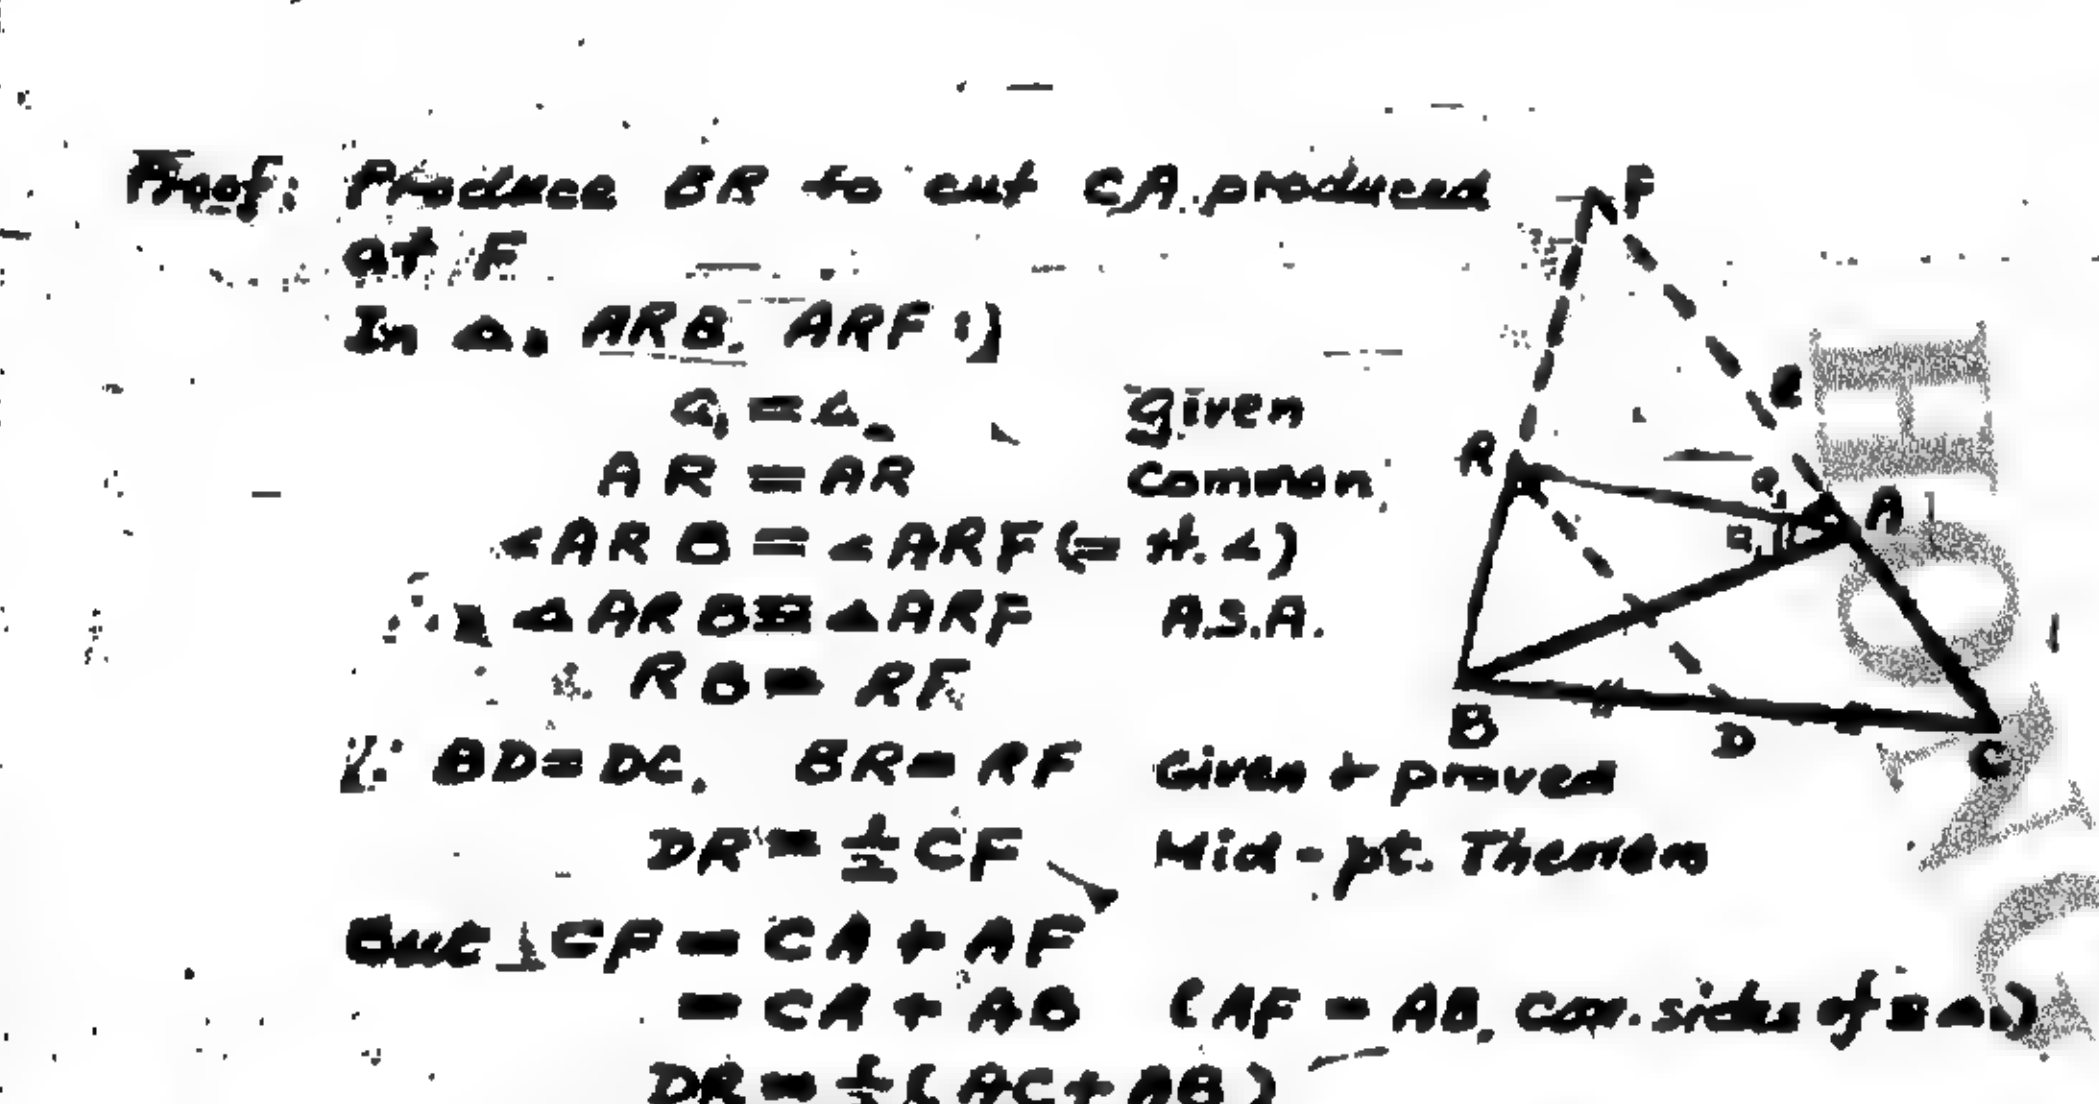 Proof: Produce BR to cut CA produced
at F
In △s ARB, ARF :)
a₁ = a₂ given
AR = AR Common
∠ARB = ∠ARF (= rt. ∠)
∴ △ARB ≡ △ARF A.S.A.
∴ RB = RF
∵ BD = DC, BR = RF Given & proved
DR = ½ CF Mid-pt. Theorem
But CF = CA + AF
= CA + AB (AF = AB, cor. sides of ≡ △s)
DR = ½ (AC + AB)
F
R
A
B
D
C
HONG